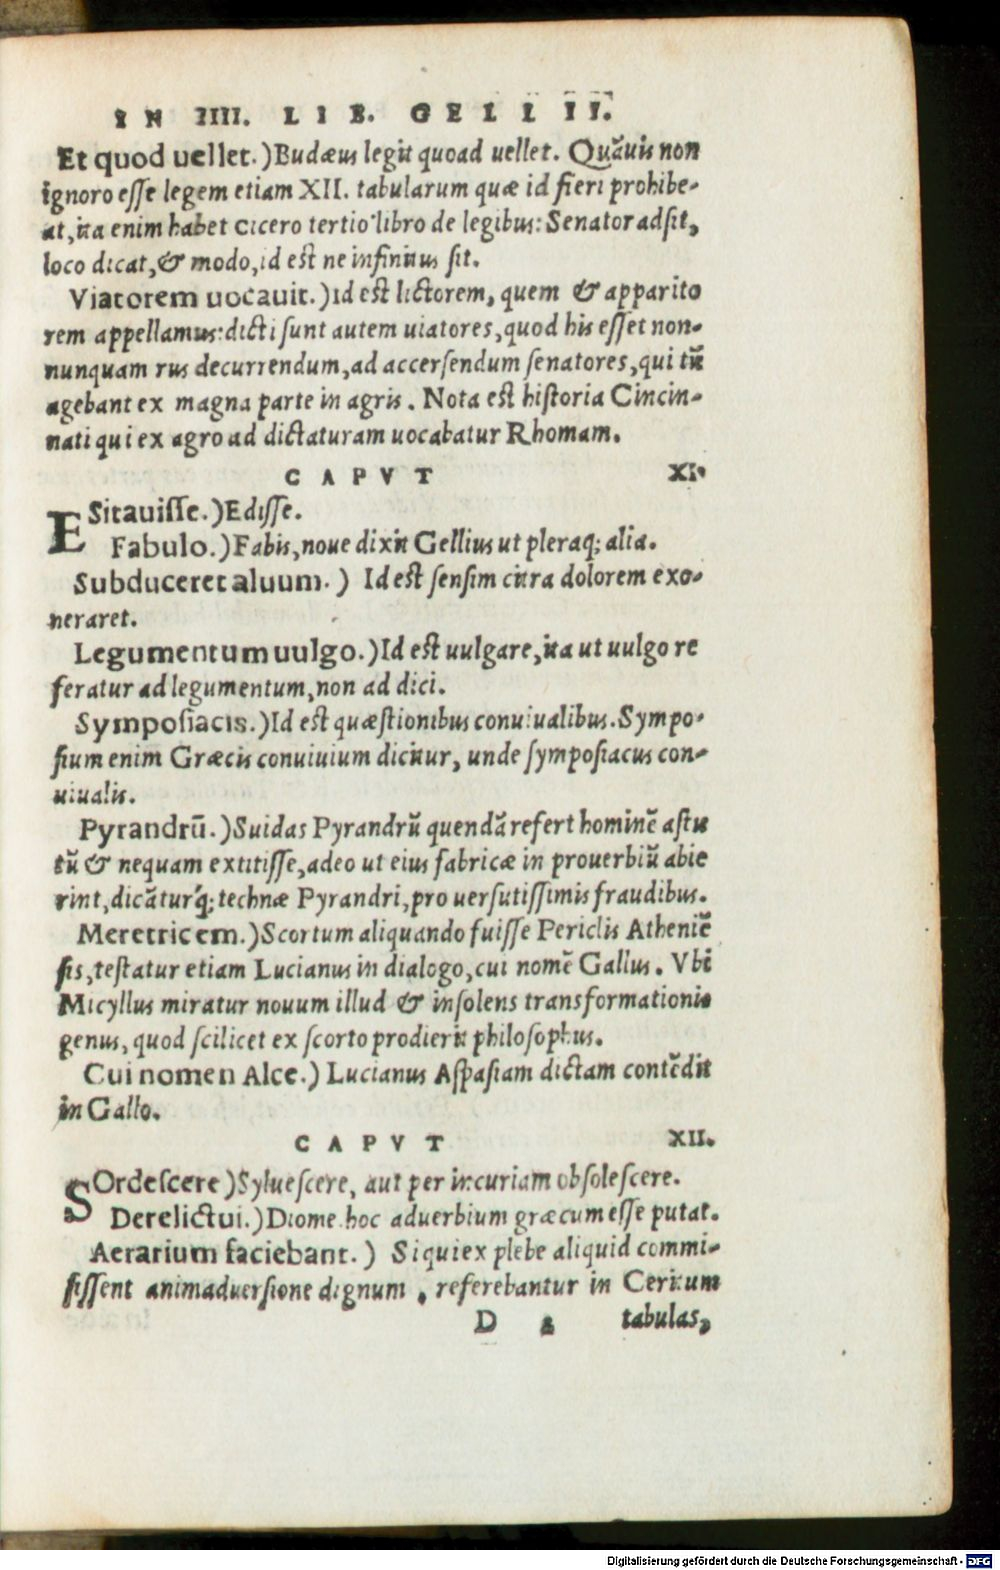 IN IIII. LIB. GELLII.
Et quod uellet.) Budæus legit quoad uellet. Quãuis non
ignoro esse legem etiam XII. tabularum quæ id fieri prohibe-
at, ita enim habet Cicero tertio libro de legibus: Senator adsit,
loco dicat, & modo, id est ne infinitus sit.
Viatorem uocauit.) id est lictorem, quem & apparito
rem appellamus: dicti sunt autem uiatores, quod his esset non-
nunquam rus decurrendum, ad accersendum senatores, qui tũ
agebant ex magna parte in agris. Nota est historia Cincin-
nati qui ex agro ad dictaturam uocabatur Rhomam.
CAPVT XI.
ESitauisse.) Edisse.
Fabulo.) Fabis, noue dixit Gellius ut pleraq; alia.
Subduceret aluum.) Id est sensim citra dolorem exo-
neraret.
Legumentum uulgo.) Id est uulgare, ita ut uulgo re
feratur ad legumentum, non ad dici.
Symposiacis.) Id est quæstionibus conuiualibus. Sympo-
sium enim Græcis conuiuium dicitur, unde symposiacus con-
uiualis.
Pyrandrũ.) Suidas Pyrandrũ quendã refert hominẽ astu
tũ & nequam extitisse, adeo ut eius fabricæ in prouerbiũ abie
rint, dicãturq́; technæ Pyrandri, pro uersutissimis fraudibus.
Meretricem.) Scortum aliquando fuisse Periclis Atheniẽ
sis, testatur etiam Lucianus in dialogo, cui nomẽ Gallus. Vbi
Micyllus miratur nouum illud & insolens transformationis
genus, quod scilicet ex scorto prodierit philosophus.
Cui nomen Alce.) Lucianus Aspasiam dictam contẽdit
in Gallo.
CAPVT XII.
SOrdescere) Syluescere, aut per incuriam obsolescere.
Derelictui.) Diome. hoc aduerbium græcum esse putat.
Aerarium faciebant.) Si qui ex plebe aliquid commi-
sissent animaduersione dignum, referebantur in Ceritum
D 2 tabulas,
Digitalisierung gefördert durch die Deutsche Forschungsgemeinschaft - DFG